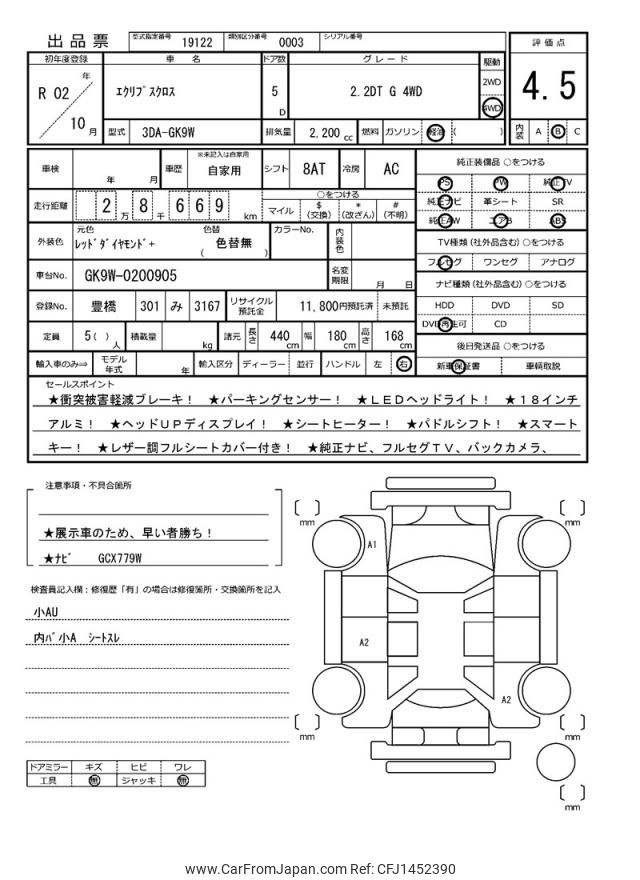 出品票 型式指定番号 19122 類別区分番号 0003 シリアル番号
初年度登録 車名 ドア数 グレード 駆動 評価点
R 02 年 10 月 エクリプスクロス 5 D 2.2DT G 4WD 2WD 4WD 4.5
型式 3DA-GK9W 排気量 2,200 cc 燃料 ガソリン 軽油 ( ) 内装 A B C
車検 年 月 車歴 ※未記入は自家用 自家用 シフト 8AT 冷房 AC
走行距離 2 万 8 千 6 6 9 km ○をつける マイル $ (交換) * (改ざん) # (不明)
外装色 元色 レッドダイヤモンド+ 色替 ( 色替無 ) カラーNo. 内装色
車台No. GK9W-0200905 名変期限 月 日
登録No. 豊橋 301 み 3167 リサイクル預託金 11,800円預託済 未預託
定員 5( )人 積載量 kg 諸元 長さ 440 cm 幅 180 cm 高さ 168 cm
輸入車のみ⇒ モデル年式 年 輸入区分 ディーラー 並行 ハンドル 左 右
純正装備品 ○をつける
PS PW 純正TV
純正ナビ 革シート SR
純正AW エアB ABS
TV種類(社外品含む) ○をつける
フルセグ ワンセグ アナログ
ナビ種類(社外品含む) ○をつける
HDD DVD SD
DVD再生可 CD
後日発送品 ○をつける
新車保証書 車輌取説
セールスポイント
★衝突被害軽減ブレーキ！ ★パーキングセンサー！ ★ＬＥＤヘッドライト！ ★１８インチ
アルミ！ ★ヘッドＵＰディスプレイ！ ★シートヒーター！ ★パドルシフト！ ★スマート
キー！ ★レザー調フルシートカバー付き！ ★純正ナビ、フルセグＴＶ、バックカメラ、
注意事項・不具合箇所
★展示車のため、早い者勝ち！
★ナビ GCX779W
検査員記入欄：修復歴「有」の場合は修復箇所・交換箇所を記入
小AU
内バ小A シートスレ
ドアミラー キズ ヒビ ワレ
工具 無 ジャッキ 無
mm mm
A1
A2
A2
mm mm
mm
www.CarFromJapan.com Ref: CFJ1452390